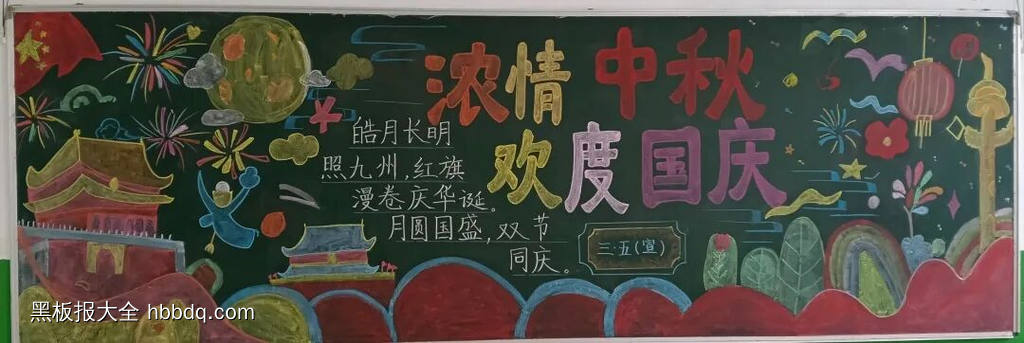 浓情中秋
欢度国庆
皓月长明
照九州,红旗
漫卷庆华诞。
月圆国盛,双节
同庆。
三·五(宣)
黑板报大全 hbbdq.com